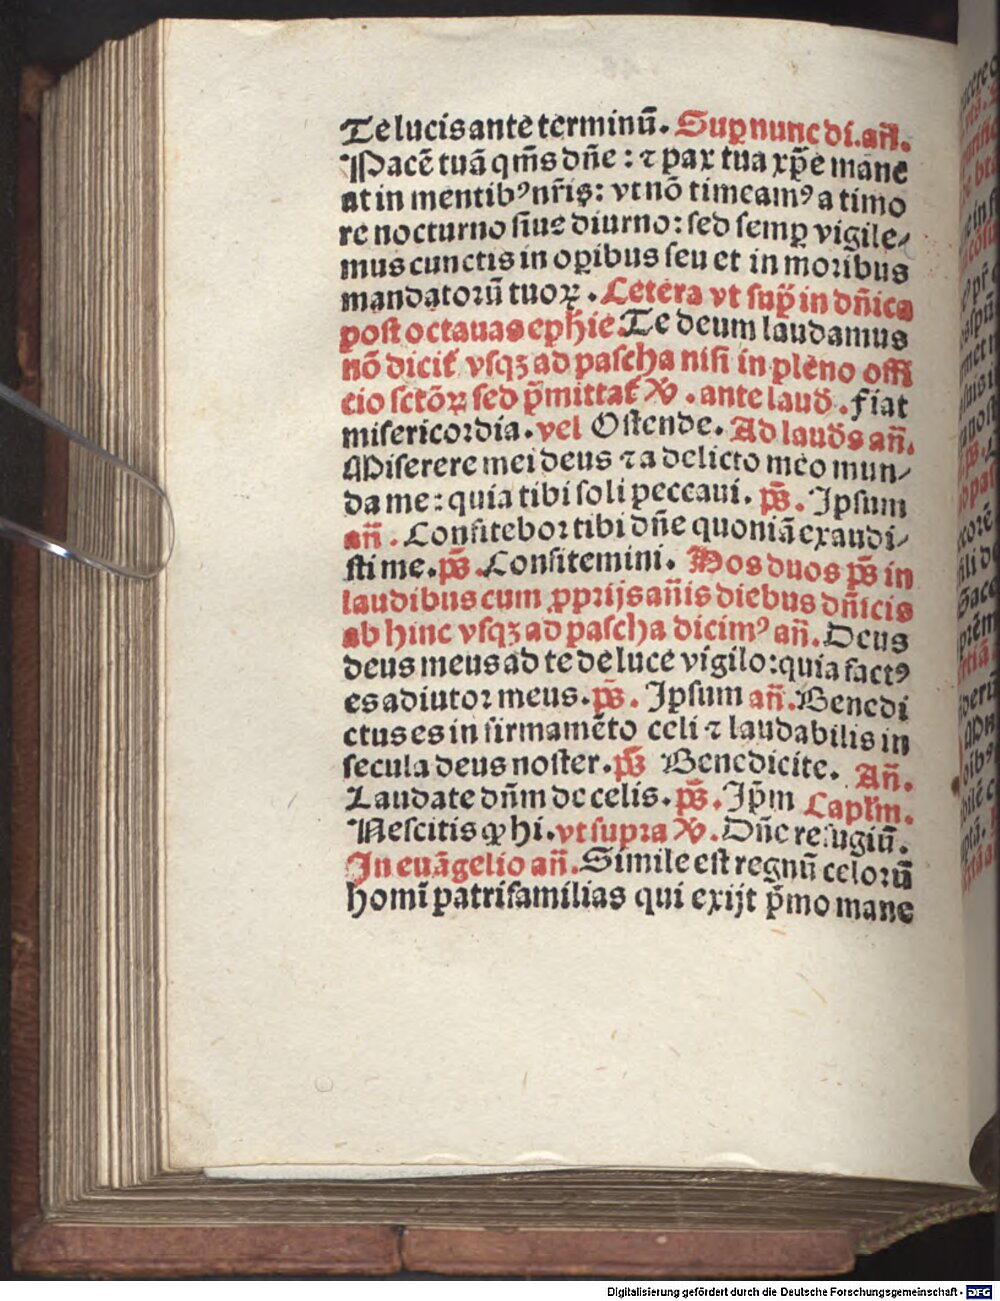 Te lucis ante terminū. Suꝑ nunc di. añ.
Pacē tuā qm̄s dñe: ⁊ pax tua xp̄e mane
at in mentibꝰ nr̄is: vt nō timeamꝰ a timo
re nocturno siue diurno: sed semꝑ vigile⸗
mus cunctis in oꝑibus seu et in moribus
mandatorū tuoꝝ. Cetera vt sup̄ in dñica
post octauas ephie. Te deum laudamus
nō dicit̄ vsqꝫ ad pascha nisi in pleno offi
cio sctōꝝ sed p̄mittat̄ ℣. ante laud̄. Fiat
misericordia. vel Ostende. Ad laud̄s añ.
Miserere mei deus ⁊ a delicto meo mun⸗
da me: quia tibi soli peccaui. ps̄. Ipsum
añ. Confitebor tibi dñe quoniā exaudi⸗
sti me. ps̄. Confitemini. Hos duos ps̄ in
laudibus cum ꝓprijs añis diebus dñicis
ab hinc vsqꝫ ad pascha dicimꝰ añ. Deus
deus meus ad te de luce vigilo: quia factꝰ
es adiutor meus. ps̄. Ipsum añ. Benedi
ctus es in firmamēto celi ⁊ laudabilis in
secula deus noster. ps̄ Benedicite. Añ.
Laudate dñm de celis. ps̄. Ip̄m Capl̄m.
Nescitis ꝙ hi. vt supra ℣. Dñe refugiū.
In euāgelio añ. Simile est regnū celorū
homī patrifamilias qui exijt p̄mo mane
Digitalisierung gefördert durch die Deutsche Forschungsgemeinschaft - DFG